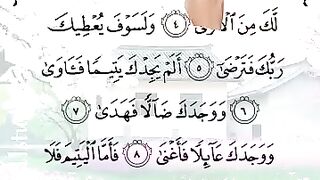 لَّكَ مِنَ ٱلْأُولَىٰ ٤ وَلَسَوْفَ يُعْطِيكَ
رَبُّكَ فَتَرْضَىٰٓ ٥ أَلَمْ يَجِدْكَ يَتِيمًا فَـَٔاوَىٰ
٦ وَوَجَدَكَ ضَآلًّا فَهَدَىٰ ٧
وَوَجَدَكَ عَآئِلًا فَأَغْنَىٰ ٨ فَأَمَّا ٱلْيَتِيمَ فَلَا